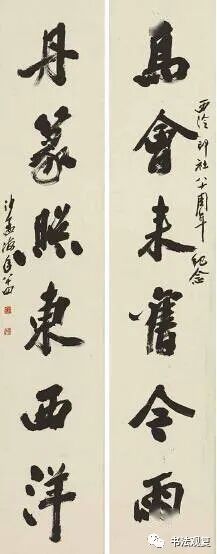 會來舊今雨
西泠印社八十周年紀念
丹篆東西洋
沙孟海
书法观复